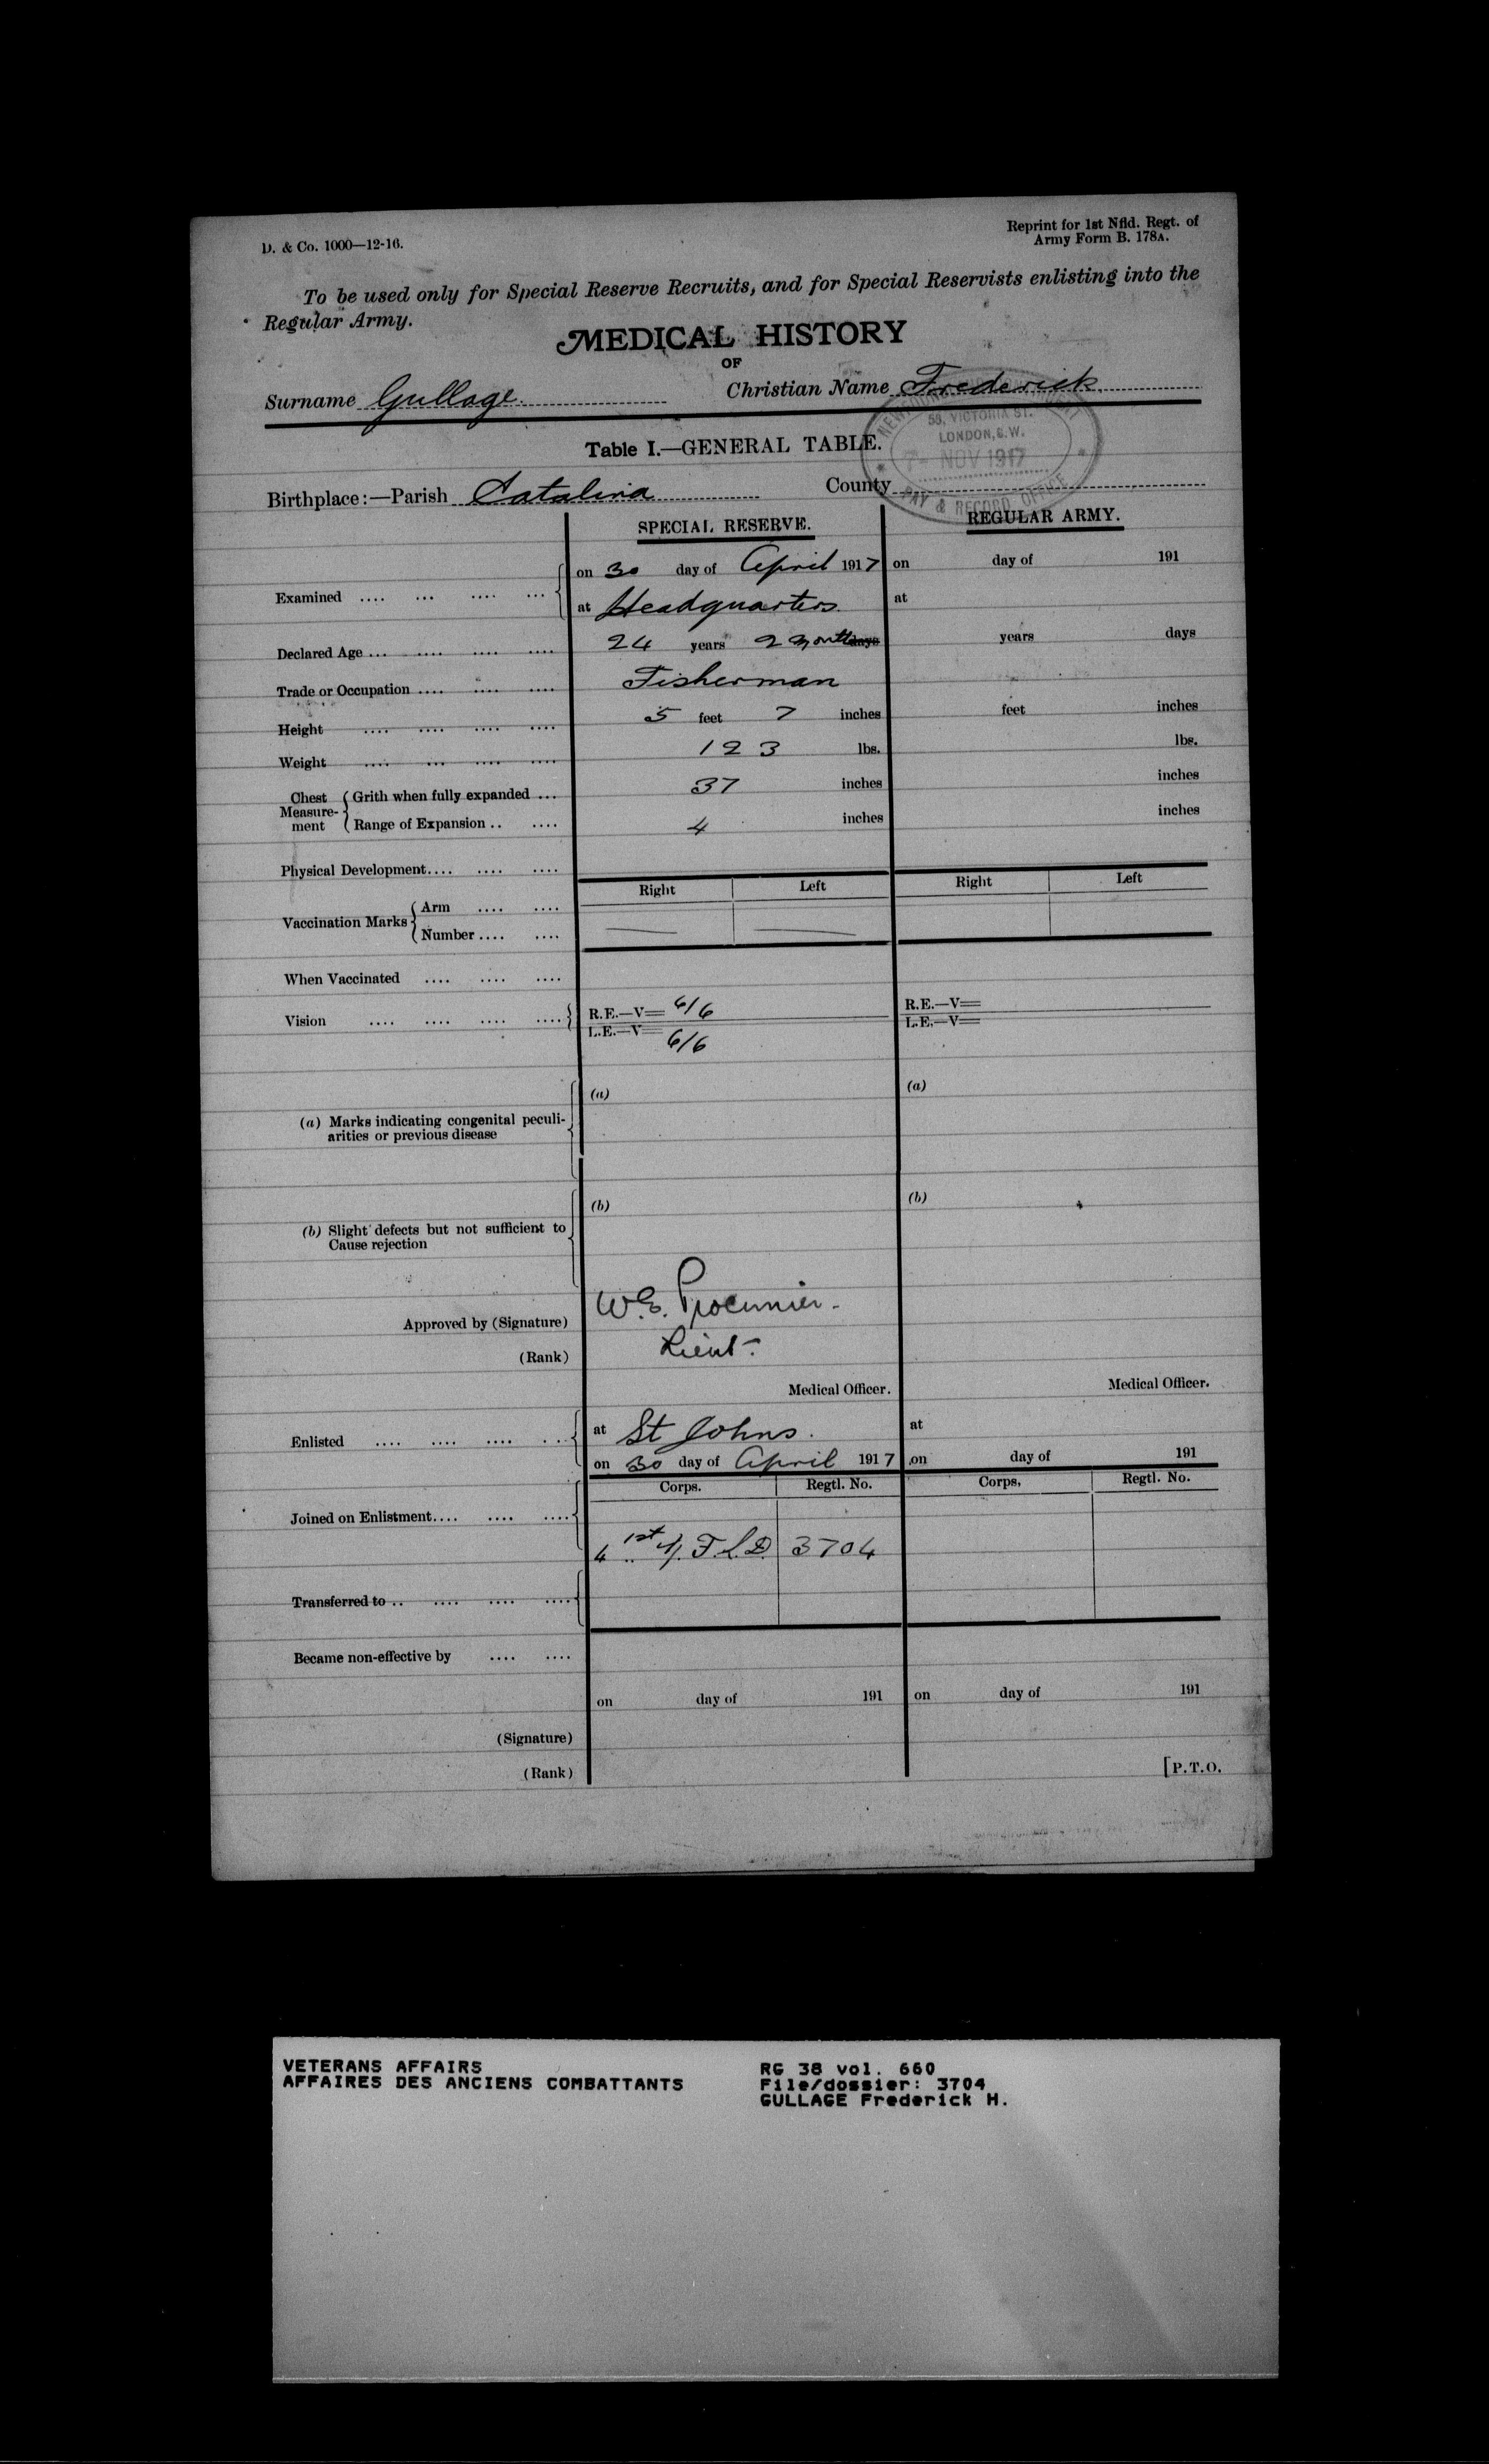 D. & Co. 1000—12-16.
Reprint for 1st Nfld. Regt. of
Army Form B. 178A.
To be used only for Special Reserve Recruits, and for Special Reservists enlisting into the
Regular Army.
MEDICAL HISTORY
OF
Surname Gullage. Christian Name Frederick
58, VICTORIA ST.
LONDON, S.W.
7- NOV 1917
PAY & RECORD OFFICE
Table I.—GENERAL TABLE.
Birthplace:—Parish Catalina County
SPECIAL RESERVE. REGULAR ARMY.
Examined .... ... .... ... on 30 day of April 1917 on day of 191
at Headquarters. at
Declared Age ... .... .... .... 24 years 2 months days years days
Trade or Occupation .... .... .... Fisherman
Height .... .... .... .... 5 feet 7 inches feet inches
Weight .... ... .... .... 123 lbs. lbs.
Chest Measure-ment Grith when fully expanded ... 37 inches inches
Range of Expansion .. .... 4 inches inches
Physical Development.... .... ....
Right Left Right Left
Vaccination Marks Arm .... ....
Number .... ....
When Vaccinated .... .... ....
Vision .... .... .... .... R.E.—V= 6/6 R.E.—V=
L.E.—V= 6/6 L.E.—V=
(a) (a)
(a) Marks indicating congenital peculi-
arities or previous disease
(b) (b)
(b) Slight defects but not sufficient to
Cause rejection
Approved by (Signature) W.E. Procunier.
(Rank) Lieut.
Medical Officer. Medical Officer.
Enlisted .... .... .... ... at St Johns. at
on 30 day of April 1917 on day of 191
Corps. Regtl. No. Corps. Regtl. No.
Joined on Enlistment.... .... ....
1st 3704
Transferred to .. .... .... ....
Became non-effective by .... ....
on day of 191 on day of 191
(Signature)
(Rank)
[P.T.O.
VETERANS AFFAIRS
AFFAIRES DES ANCIENS COMBATTANTS
RG 38 vol. 660
File/dossier: 3704
GULLAGE Frederick H.